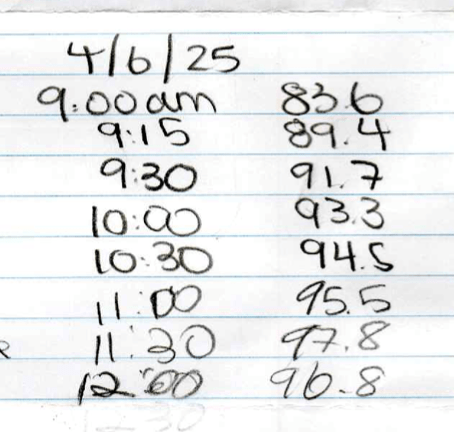 4/6/25
9:00am 83.6
9:15 89.4
9:30 91.7
10:00 93.3
10:30 94.5
11:00 95.5
11:30 97.8
12:00 96.8